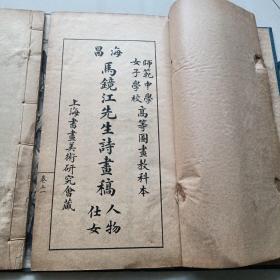 師範中學
女子學校
高等圖畫教科本
海昌
馬鏡江先生詩畫稿
人物
仕女
上海書畫美術研究會藏
卷上